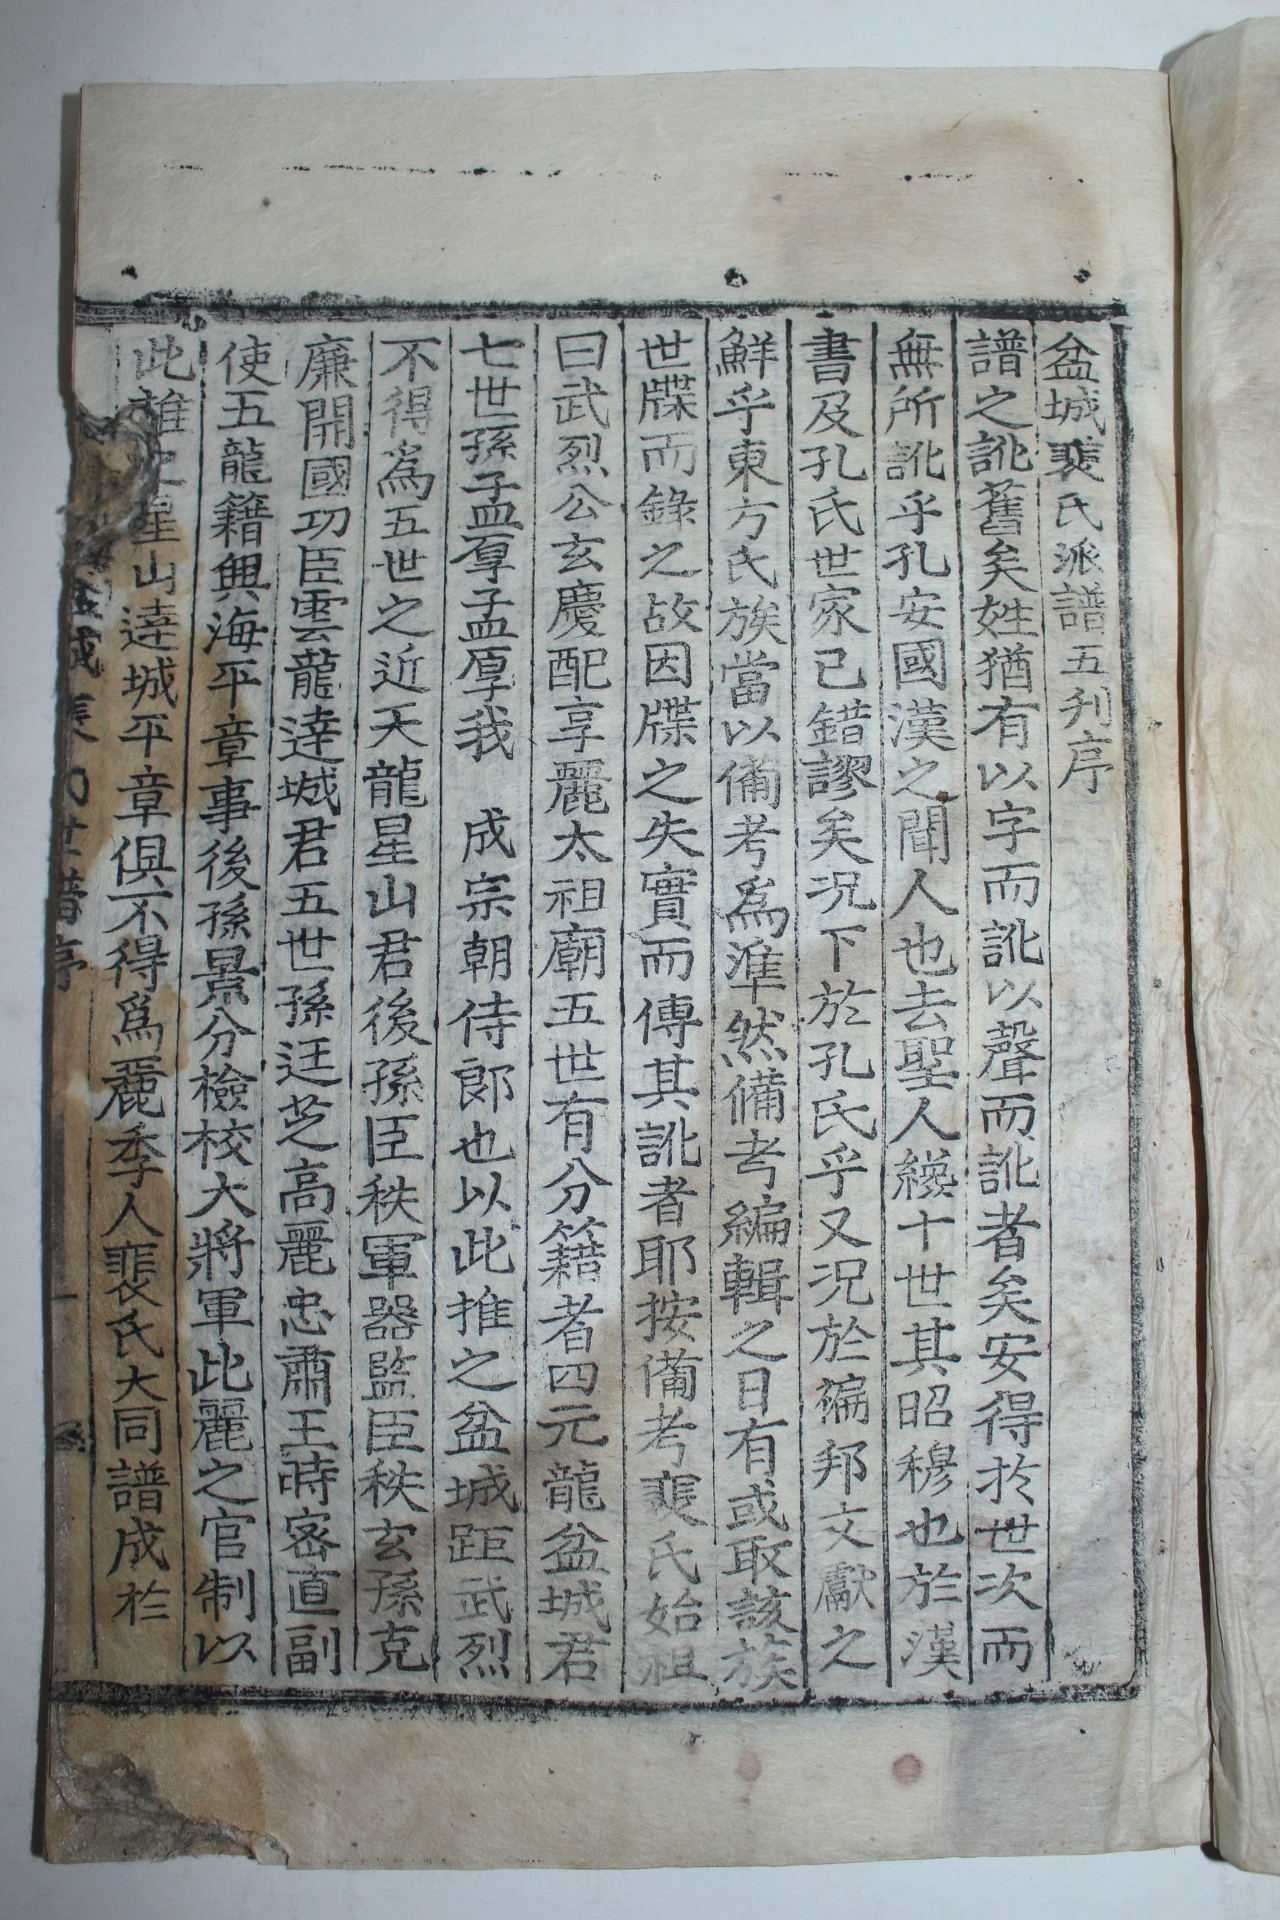 盆城裴氏派譜五刋序
譜之訛舊矣姓猶有以字而訛以聲而訛者矣安得於世次而
無所訛乎孔安國漢之聞人也去聖人纔十世其昭穆也於漢
書及孔氏世家已錯謬矣况下於孔氏乎又况於褊邦文獻之
鮮乎東方氏族當以備考爲準然備考編輯之日有或取該族
世牒而錄之故因牒之失實而傳其訛者耶按備考裴氏始祖
曰武烈公玄慶配享麗太祖廟五世有分籍者四元龍盆城君
七世孫孟厚孟厚我 成宗朝侍郎也以此推之盆城距武烈
不得爲五世之近天龍星山君後孫臣秩軍器監臣秩玄孫克
廉開國功臣雲龍達城君五世孫廷芝高麗忠肅王時密直副
使五龍籍興海平章事後孫景分檢校大將軍此麗之官制以
此推之星山達城平章俱不得爲麗季人裴氏大同譜成於
盆城 世譜序